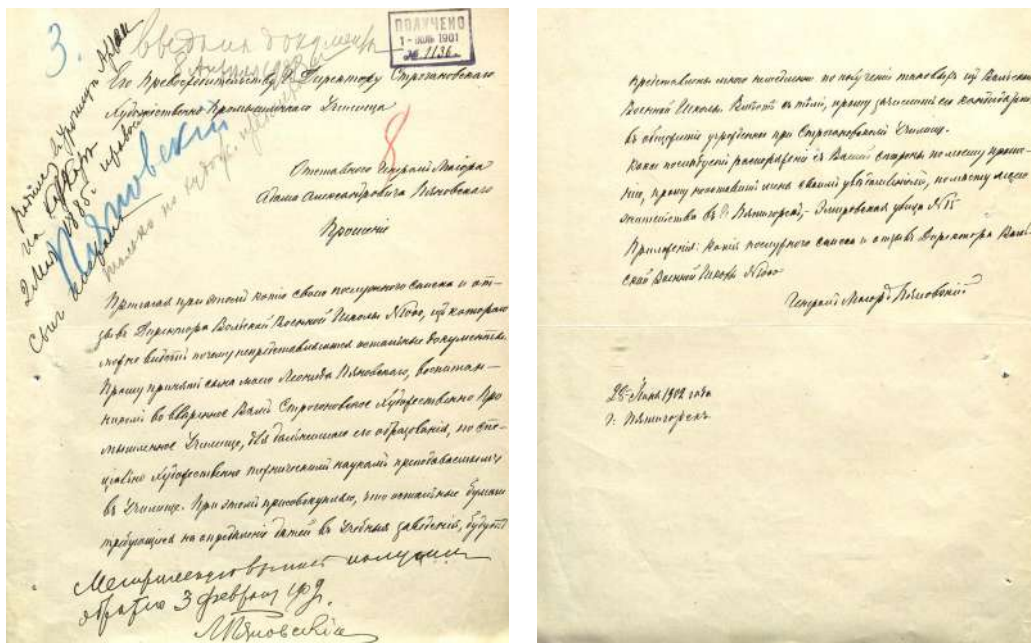 3.
ПОЛУЧЕНО
1 - ИЮЛЬ 1901
№ 1136.
Его Превосходительству Г. Директору Строгановского
Художественно Промышленного Училища
8
Отставного Генерал Маіора
Адама Александровича Пяновскаго
Прошеніе
Пяновскій
Прилагая при этомъ копію своего послужного списка и от-
зывъ Директора Вольской Военной Школы №1000, изъ котораго
можно видѣть почему непредставляются остальные документы
Прошу принять сына моего Леонида Пяновскаго, воспитан-
никомъ во ввѣренное Вамъ Строгановское Художественно Про
мышленное Училище, для дальнѣйшаго его образованія, по спе-
ціально Художественно техническимъ наукамъ преподаваемымъ
въ Училище. При этомъ присовокупляю, что остальные бумаги
требующіеся на опредѣленіе дѣтей въ Учебныя заведенія, будутъ
обратно 3 февраля
Пяновскій
представлены мною немедленно по полученіи таковыхъ изъ Вольской
Военной Школы. Вмѣстѣ съ тѣмъ, прошу зачислить его кандидатомъ
въ общежитіе учрежденное при Строгановскомъ Училище.
Какое послѣдуетъ распоряженіе съ Вашей стороны по моему проше-
нію, прошу непоставить меня своимъ увѣдомленіемъ, по мѣсту моего
жительства въ г. Пятигорскъ,- Эмировская улица №15
Приложенія: копія послужного списка и отзывъ Директора Воль-
ской Военной Школы №1000
Генералъ Маіоръ Пяновскій
28 Іюня 1902 года
г. Пятигорскъ